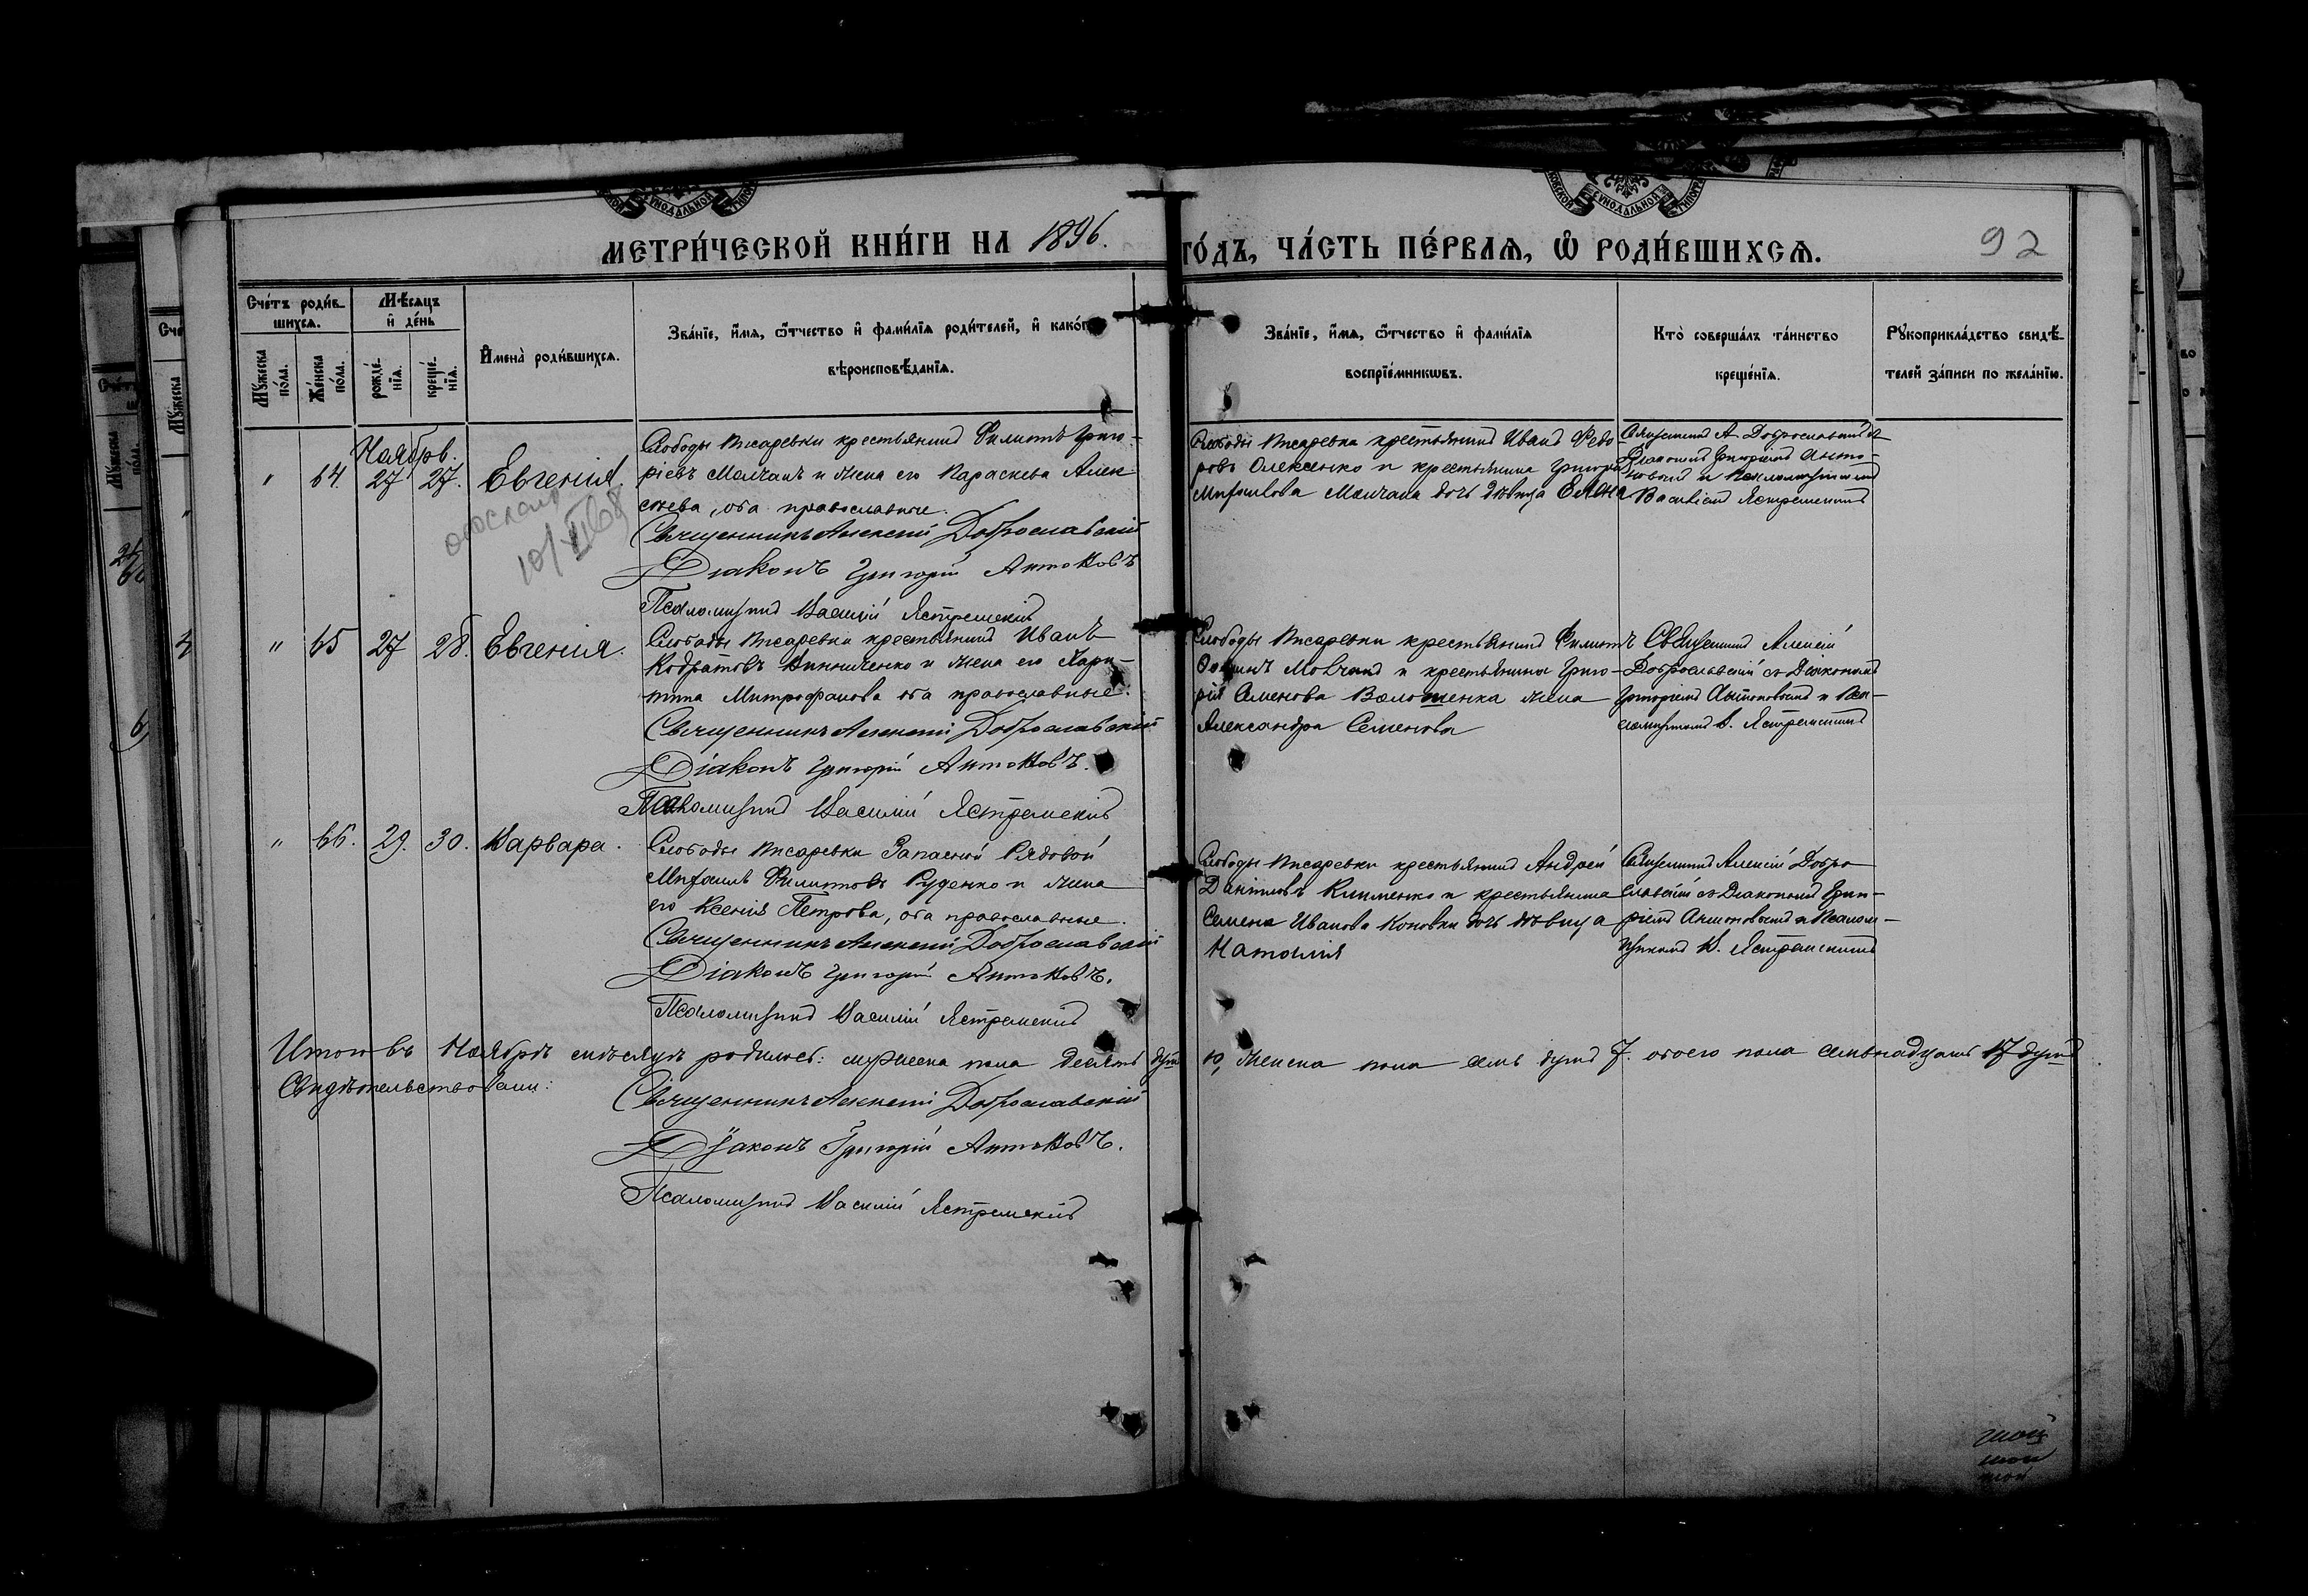 МЕТРИ́ЧЕСКОЙ КНИ́ГИ НА 1896.
ГО́ДЪ, ЧА́СТЬ ПЕ́РВАЯ, Ѽ РОДИ́ВШИХСЯ.
92
Сче́тъ роди́в-
шихся.
Мѣ́сяцъ
и҆ де́нь
Мꙋ́жеска
по́ла.
Же́нска
по́ла.
рожде́-
нїя.
креще́-
нїя.
И҆мена̀ роди́вшихся.
Зва́нїе, и҆́мя, ѻ҆́тчество и҆ фами́лїя роди́телей, и҆ како́гѡ
вѣроисповѣ́данїя.
Зва́нїе, и҆́мя, ѻ҆́тчество и҆ фами́лїя
воспрїе́мникѡвъ.
Кто̀ соверша́лъ та́инство
креще́нїя.
Рꙋкоприкла́дство свидѣ́-
телей за́писи по жела́нїю.
Ноябрь.
" 64. 27 27. Евгенія.
10/XI 68
Слободы Писаревки крестьянинъ Филиппъ Григо-
ріевъ Молчанъ и жена его Параскева Алек-
сѣева, оба православные.
Священникъ Алексій Доброславскій
Діаконъ Григорій Антоновъ
Псаломщикъ Василій Ястремскій
Слободы Писаревки крестьянинъ Иванъ Федо-
ровъ Олексенко и крестьянина Григорія
Михаилова Молчана дочь дѣвица Елена
Священникъ А. Доброславскій съ
Діакономъ Григоріемъ Анто-
новымъ и Псаломщикомъ
Василіемъ Ястремскимъ
" 65 27 28. Евгенія.
Слободы Писаревки крестьянинъ Иванъ
Кодратовъ Винниченко и жена его Хари-
тина Митрофанова оба православные.
Священникъ Алексій Доброславскій
Діаконъ Григорій Антоновъ.
Псаломщикъ Василій Ястремскій
Слободы Писаревки крестьянинъ Филиппъ
Мовчанъ и крестьянина Григо-
рія Семенова Волошенка жена
Александра Семенова
Священникъ Алексій
Доброславскій съ Діакономъ
Григоріемъ Антоновымъ и Пса-
ломщикомъ В. Ястремскимъ
" 66. 29. 30. Варвара.
Слободы Писаревки Запасной Рядовой
Михаилъ Филипповъ Руденко и жена
его Ксенія Петрова, оба православные.
Священникъ Алексій Доброславскій
Діаконъ Григорій Антоновъ.
Псаломщикъ Василій Ястремскій
Слободы Писаревки крестьянинъ Андрей
Даніиловъ Клименко и крестьянина
Семена Иванова Коновки дочь дѣвица
Наталія
Священникъ Алексій Добро-
славскій съ Діакономъ Григо-
ріемъ Антоновымъ и Псалом-
щикомъ В. Ястремскимъ
Итого въ Ноябрѣ мѣсяцѣ родилось: мужеска пола десять душъ 10, женска пола семь душъ 7. обоего пола семьнадцать 17 душъ
Свидѣтельствовали:
Священникъ Алексій Доброславскій
Діаконъ Григорій Антоновъ.
Псаломщикъ Василій Ястремскій